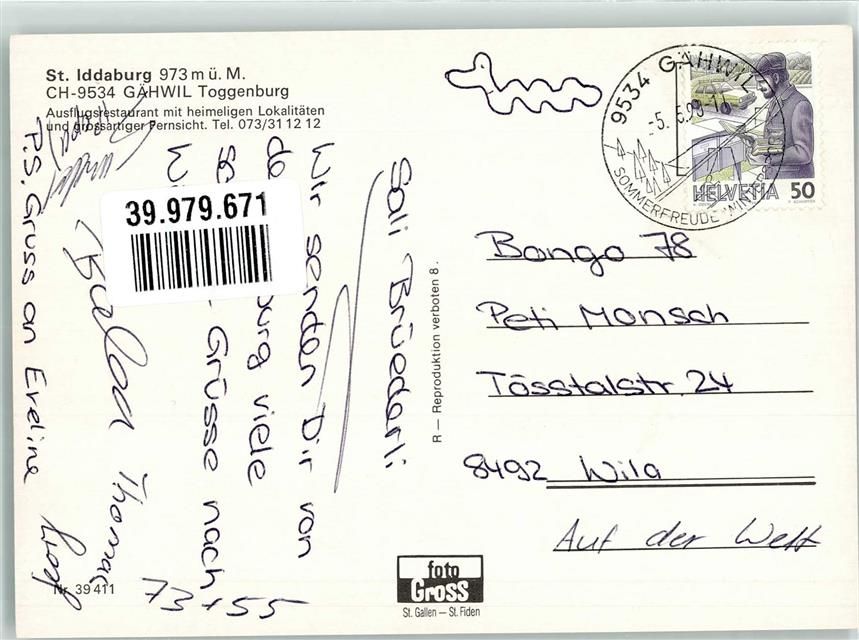 St. Iddaburg 973 m ü. M.
CH-9534 GÄHWIL Toggenburg
Ausflugsrestaurant mit heimeligen Lokalitäten
und grossartiger Fernsicht. Tel. 073/31 12 12
9534 GÄHWIL
-5.
SOMMERFREUDE
HELVETIA 50
39.979.671
Sali Brüederli
Wir senden Dir von
viele
Grüsse nach
Thomas
73 + 55
P.S. Gruss an Eveline
R — Reproduktion verboten 8.
Bongo 78
Peti Monsch
Tösstalstr. 24
8492 Wila
Auf der Welt
Nr. 39 411
foto
Gross
St. Gallen — St. Fiden